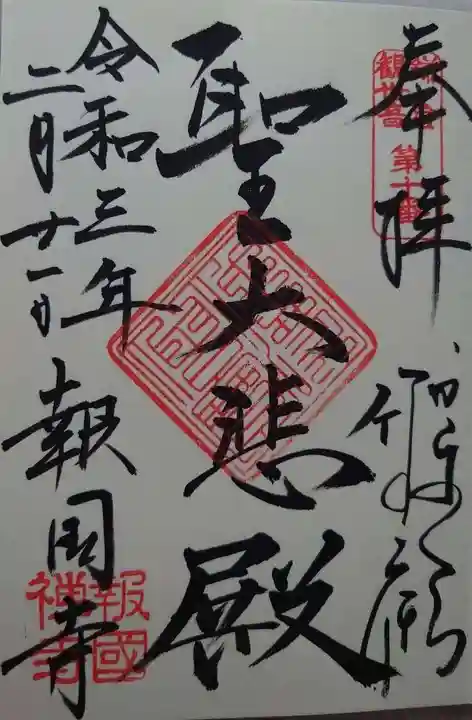 奉拝
鎌倉
観世音 第十番
聖大悲殿
令和三年
二月廿一日
報国寺
報國
禅寺